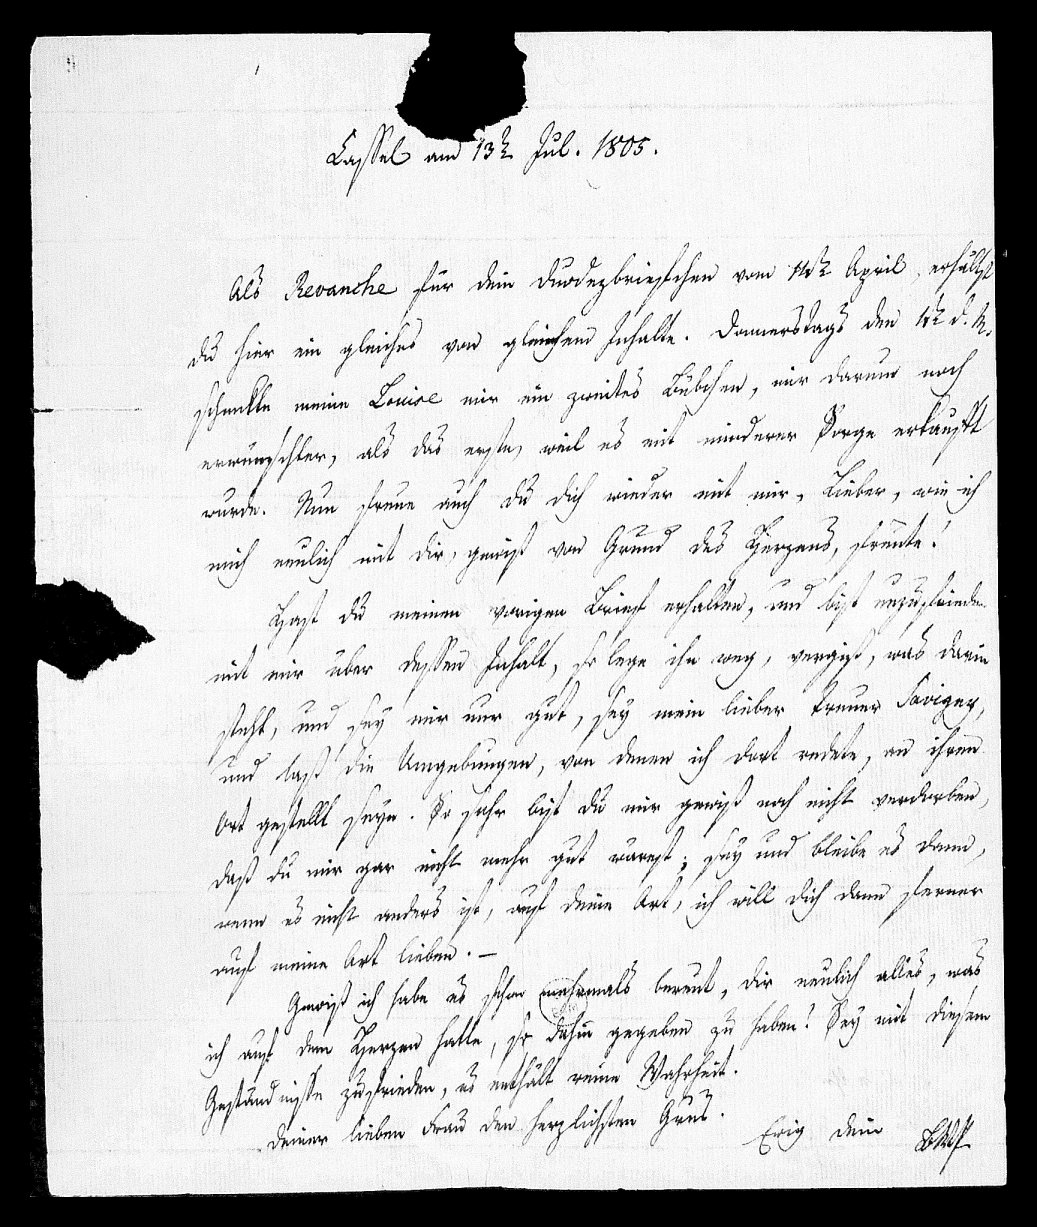 Cassel am 13t. Jul. 1805.
Als Revanche für dein Duodezbriefchen vom 11t. April, erhältst
du hier ein gleiches von gleichem Inhalte. Donnerstags den 11t. d. M.
schenkte meine Louise mir ein zweites Bübchen, mir darum noch
erwünschter, als das erste, weil es mit minderer Sorge erkauft
wurde. Nun freue auch du dich wieder mit mir, Lieber, wie ich
mich neulich mit dir, gewiß von Grund des Herzens, freute!
Hast du meinen vorigen Brief erhalten, und bist unzufrieden
mit mir über dessen Inhalt, so lege ihn weg, vergiß, was darin
steht, und sey mir nur gut, sey mein lieber treuer Savigny,
und laß die Umgebungen, von denen ich dort redete, an ihren
Ort gestellt seyn. So sehr bist du mir gewiß noch nicht verdorben,
daß du mir gar nicht mehr gut wärest; sey und bleibe es denn,
wenn es nicht anders ist, auf deine Art, ich will dich dann ferner
auf meine Art lieben. —
Gewiß ich habe es schon mehrmals bereut, dir neulich alles, was
ich auf dem Herzen hatte, so dahin gegeben zu haben! Sey mit diesem
Geständnisse zufrieden, es enthält reine Wahrheit.
Deiner lieben Frau den herzlichsten Grus.
Ewig dein